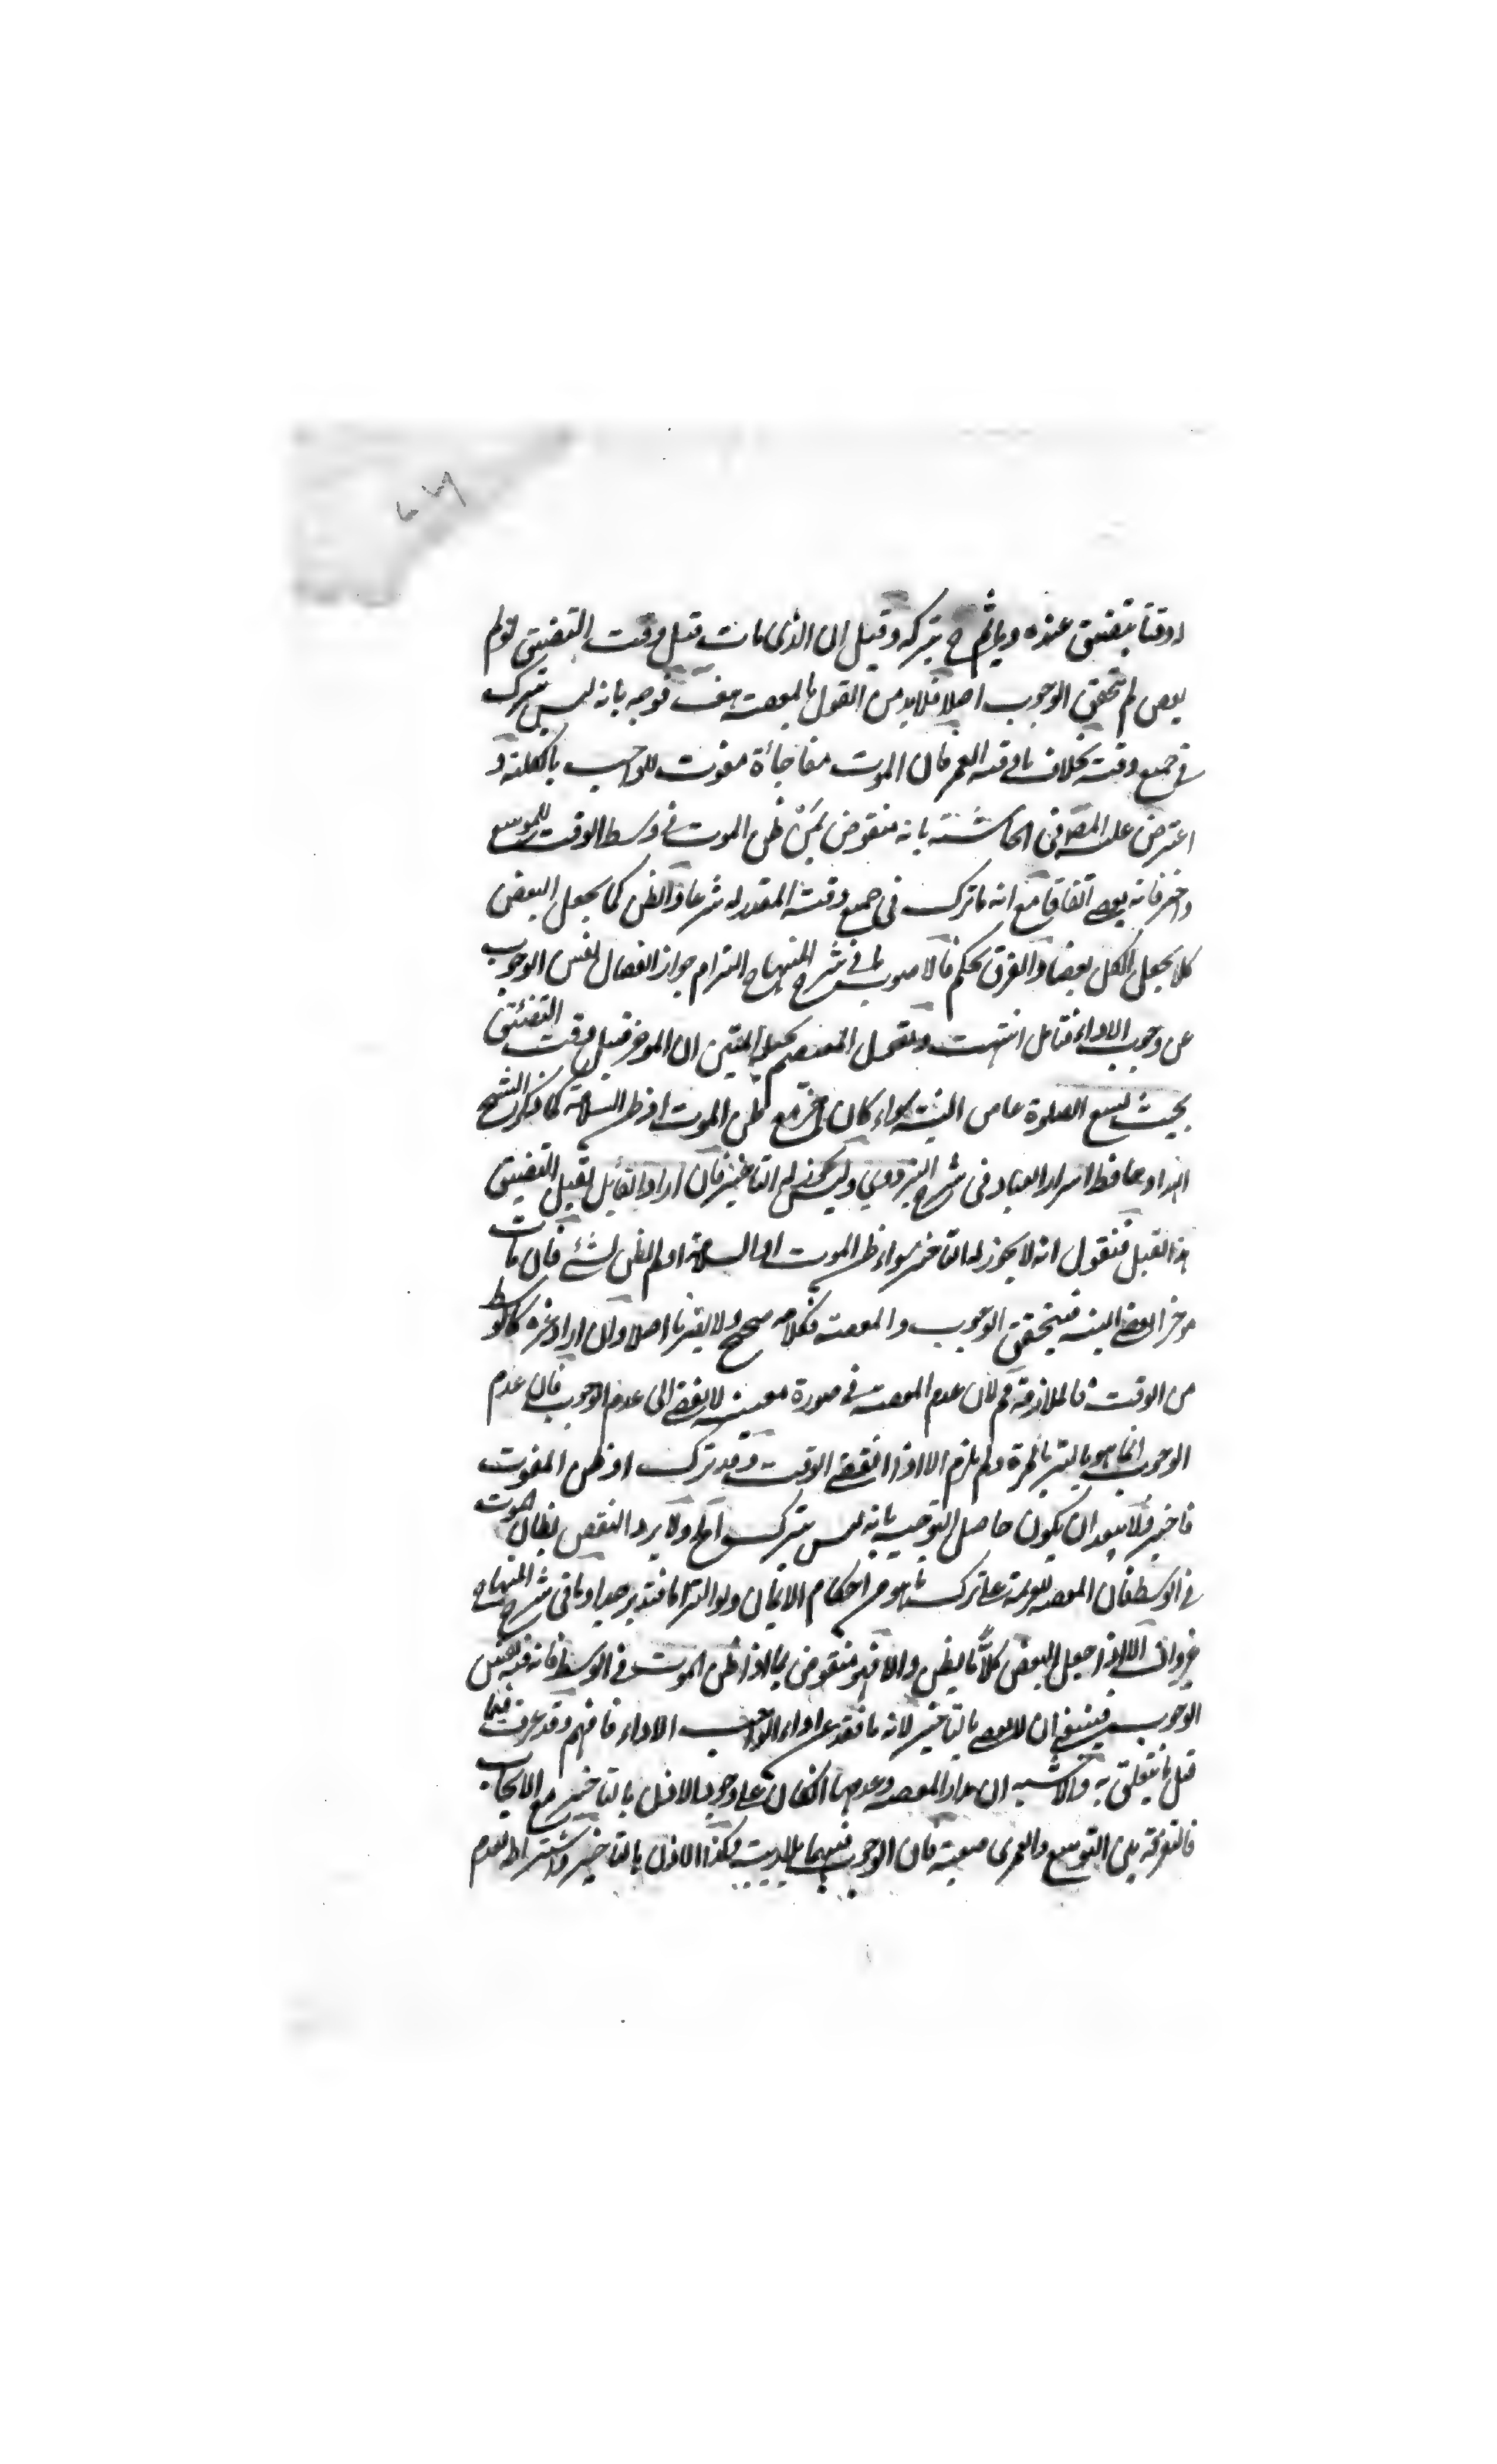 او وقتا يتضيق عنده وياثم ح بتركه وقيل ان الذى مات قبل وقت التضييق لو لم
يعص لم يتحقق الوجوب اصلا فلا بد من القول بالمعصية هف فوجه بانه ليس بترك
فى جميع وقته بخلاف ما وقته العمر فان الموت مفاجأة مفوت للواجب بالكلية و
اعترض عليه المص فى الحاشية بانه منقوض بمن ظن الموت فى وسط الوقت للموسع
واخر فانه يعصى اتفاقا مع انه ما ترك فى جميع وقته المقدر له شرعا والظن كما يجعل البعض
كلا يجعل الكل بعضا والفرق تحكم فالاصوب ما فى شرح المنهاج التزام جواز انفصال نفس الوجوب
عن وجوب الاداء فتامل انتهت ويقول المعتصم بحبله المتين ان الموخر قبل وقت التضييق
بحيث يسع الصلوة عاص البتة سواء كان مع ظن الموت او ظن السلامة كما ذكره الشيخ
الهداد حافظ اسرار العباد فى شرح البزدوي وليس يجوز له التاخير فان اراد القائل بقبل التضييق
هذا القبل فنقول انه لا يجوز له التاخير سواء ظن الموت او السلامة او لم يظن لشئ فان مات
موخرا يعصى البتة فيتحقق الوجوب والمعصية فكلامه صحيح ولا يضرنا اصلا وان اراد غيره كالوسط
من الوقت فالملازمة مم لان عدم المعصية فى صورة معينة لا يفضى الى عدم الوجوب فان عدم
الوجوب انما هو بالترك بالمرة ولم يلزم الا اذا انقضى الوقت وقد ترك او ظن المفوت
فاخير ولا يبعد ان يكون حاصل التوجيه بانه ليس بترك ولا يرد النقض بظان الموت
فى الوسط فان المعصية للعزيمة على ترك ما هو من احكام الايمان ولو التزاما فتدبر جدا وما فى شرح المنهاج
فى الا اذا جعل البعض كلا بالظن والا فهو منقوض بما اذا ظن الموت فى الوسط فانه فيه نفس
الوجوب فينبغى ان لا يعصى بالتاخير لانه ما فقد عن اداء الواجب الاداء فافهم وقد عرفت فيما
قبل ما يتعلق به والاشبه ان مدار المعصية وعدمها انما كان على وجود الاذن بالتاخير مع الايجاب
فالتفرقة بين الموسع والعمرى صعبة فان الوجوب فيهما بلا ريب وكذا الاذن بالتاخير واشتراطه بعدم